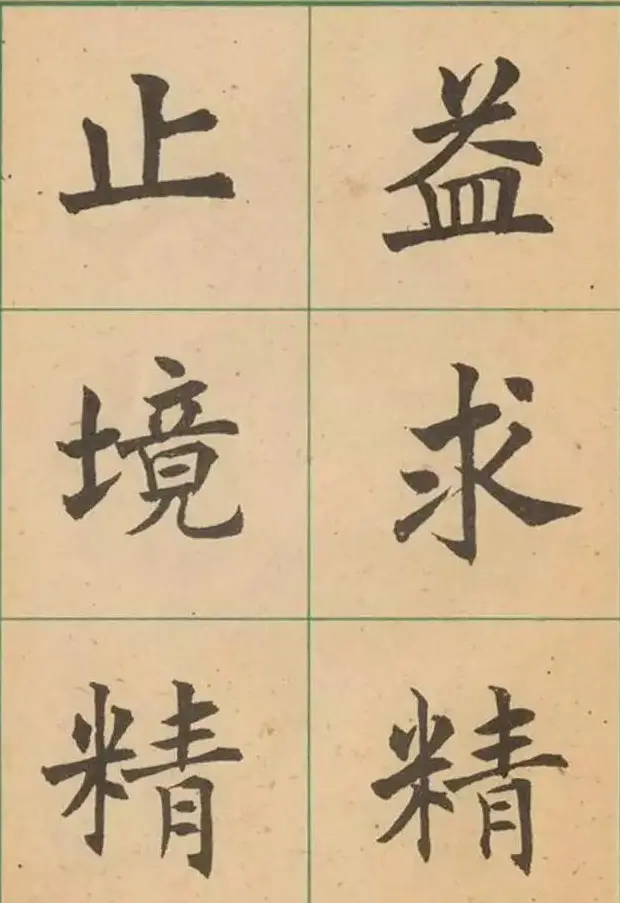 益求精
止境精